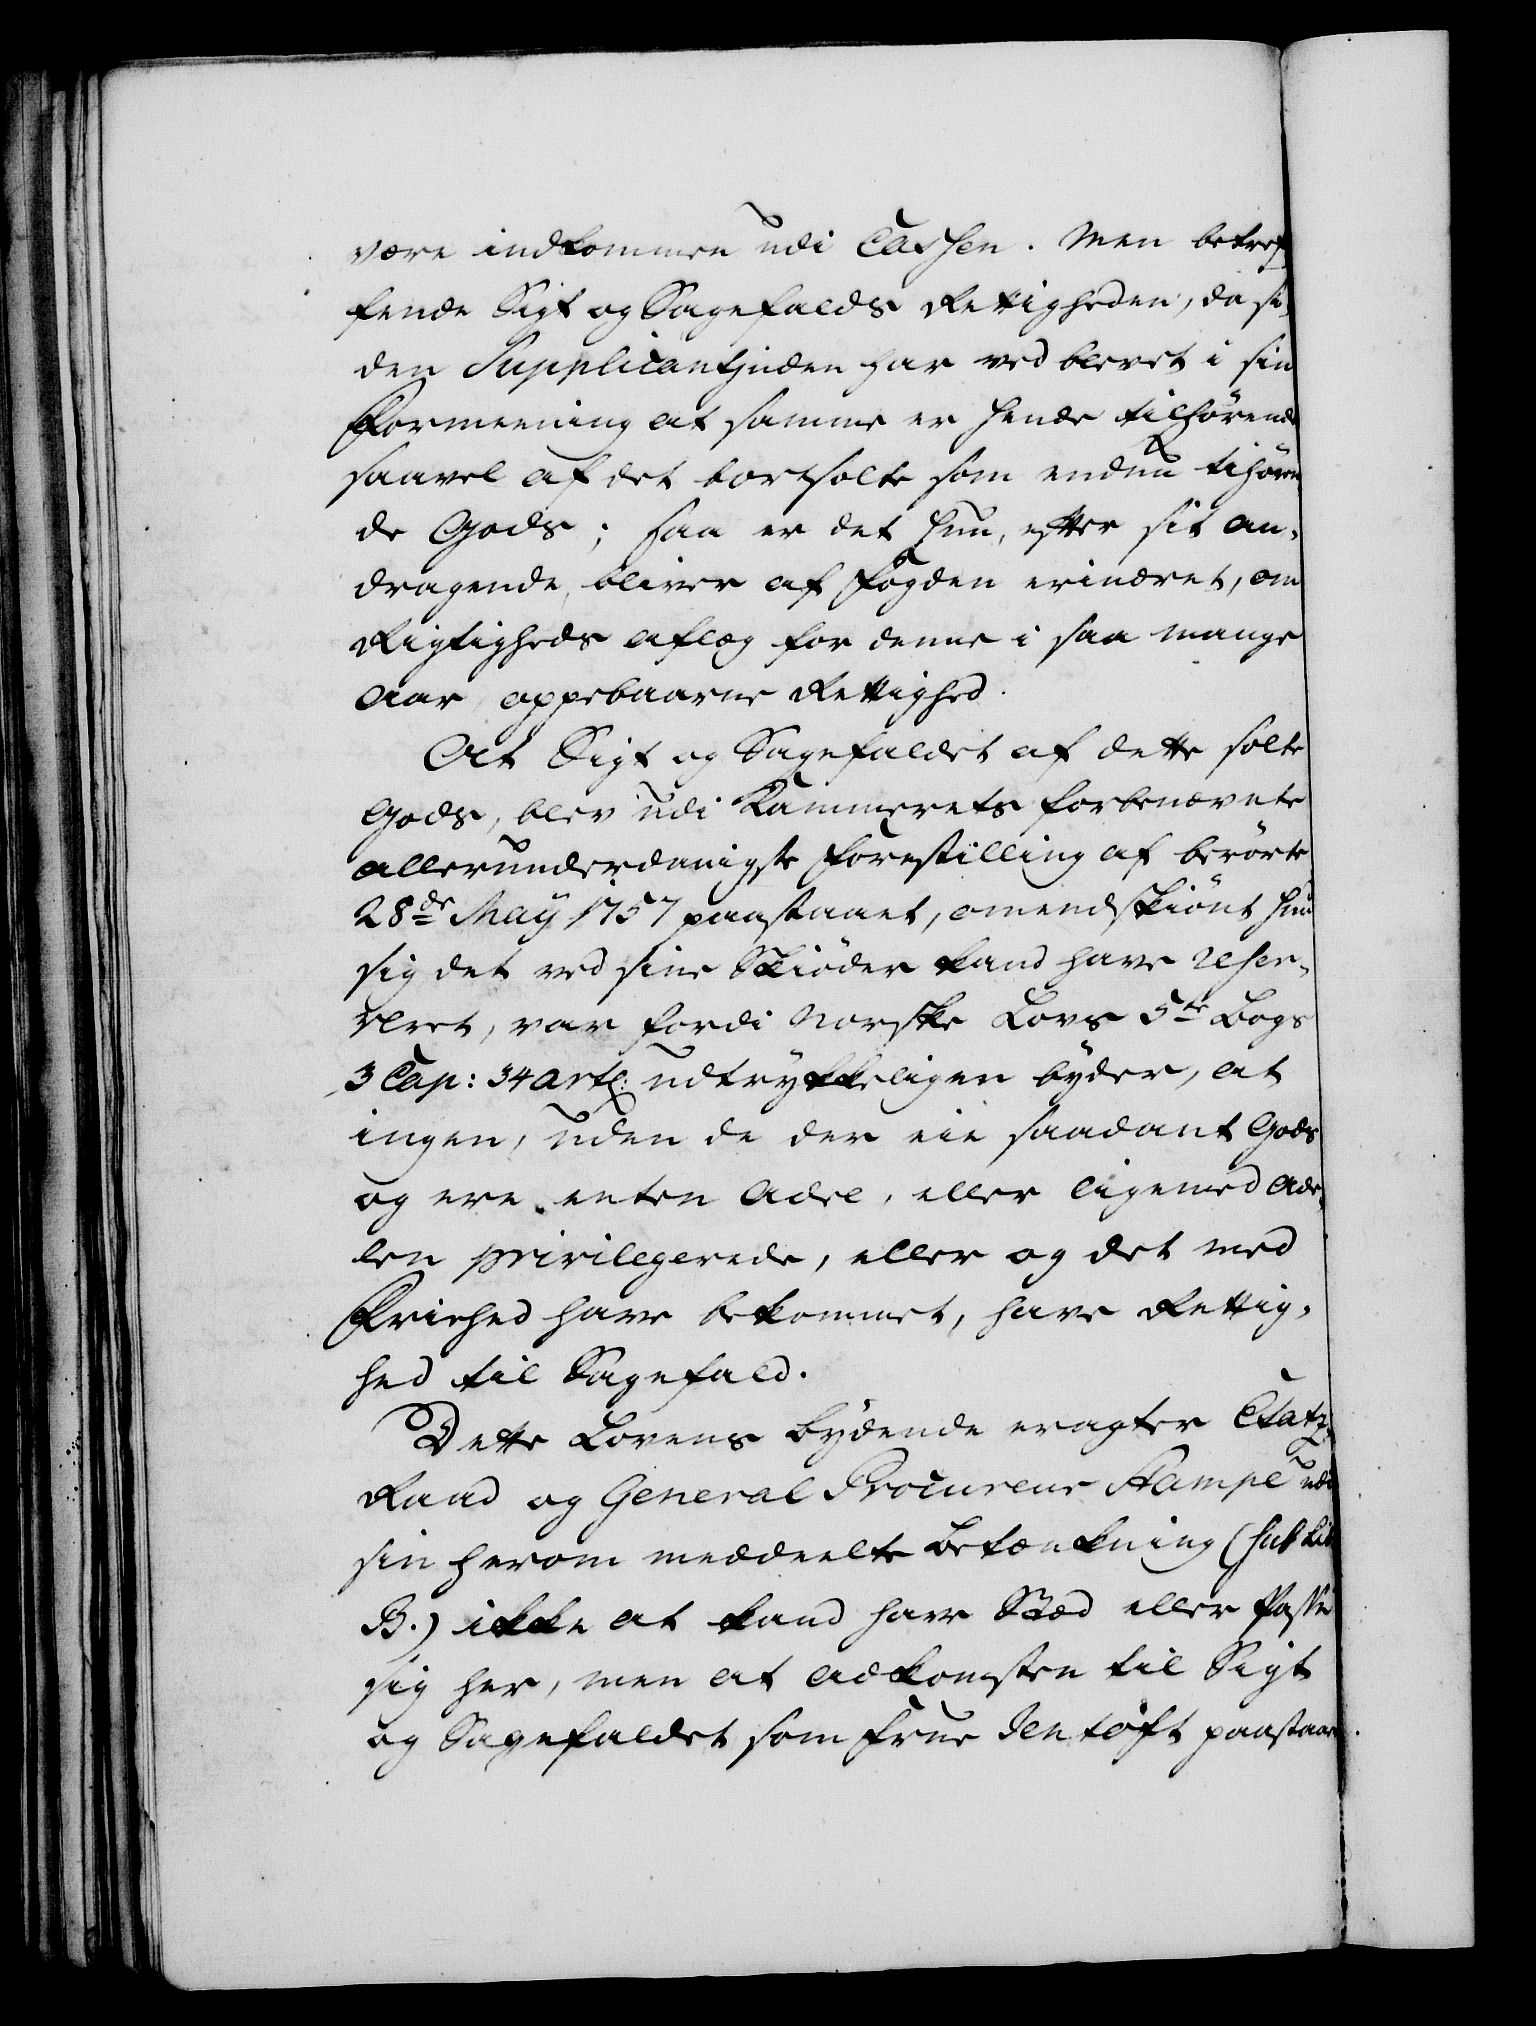 være indkommen udi Cassen. Men betref-
fende Sigt og Sagefalds Rettigheden, da si-
den Supplicantinden har ved blevet i sin
Formeening at samme er hende tilhørende
saavel af det bortsolte som endnu tihøren
de Gods; saa er det hun, efter sit an-
dragende, bliver af Fogden erindret, om
Rigtigheds aflæg for denne i saa mange
Aar oppebaarne Rettighed.
At Sigt og Sagefaldet af dette solte
Gods, blev udi Kammerets forbenævnte
allerunderdanigste Forestilling af berørte
28de May 1757 paastaaet, omendskiønt hun
sig det ved sine Skiøder kand have reser-
veret, var fordi Norske Lovs 5te Bogs
3 Cap: 34 Artl: udtrykkeligen byder, at
ingen, uden de der eie saadant Gods
og ere enten Adel, eller ligemed Ade-
len privilegerede, eller og det med
Friehed have bekommet, have Rettig-
hed til Sagefald.
Dette Lovens bydende eragter Etatz-
Raad og General Procureur Stampe udi
sin herom meddeelte Betænkning (sub Lit
B.) ikke at kand have Stæd eller Passe
sig her, men at Adkomsten til Sigt
og Sagefaldet som Frue Jentoft paastaaer